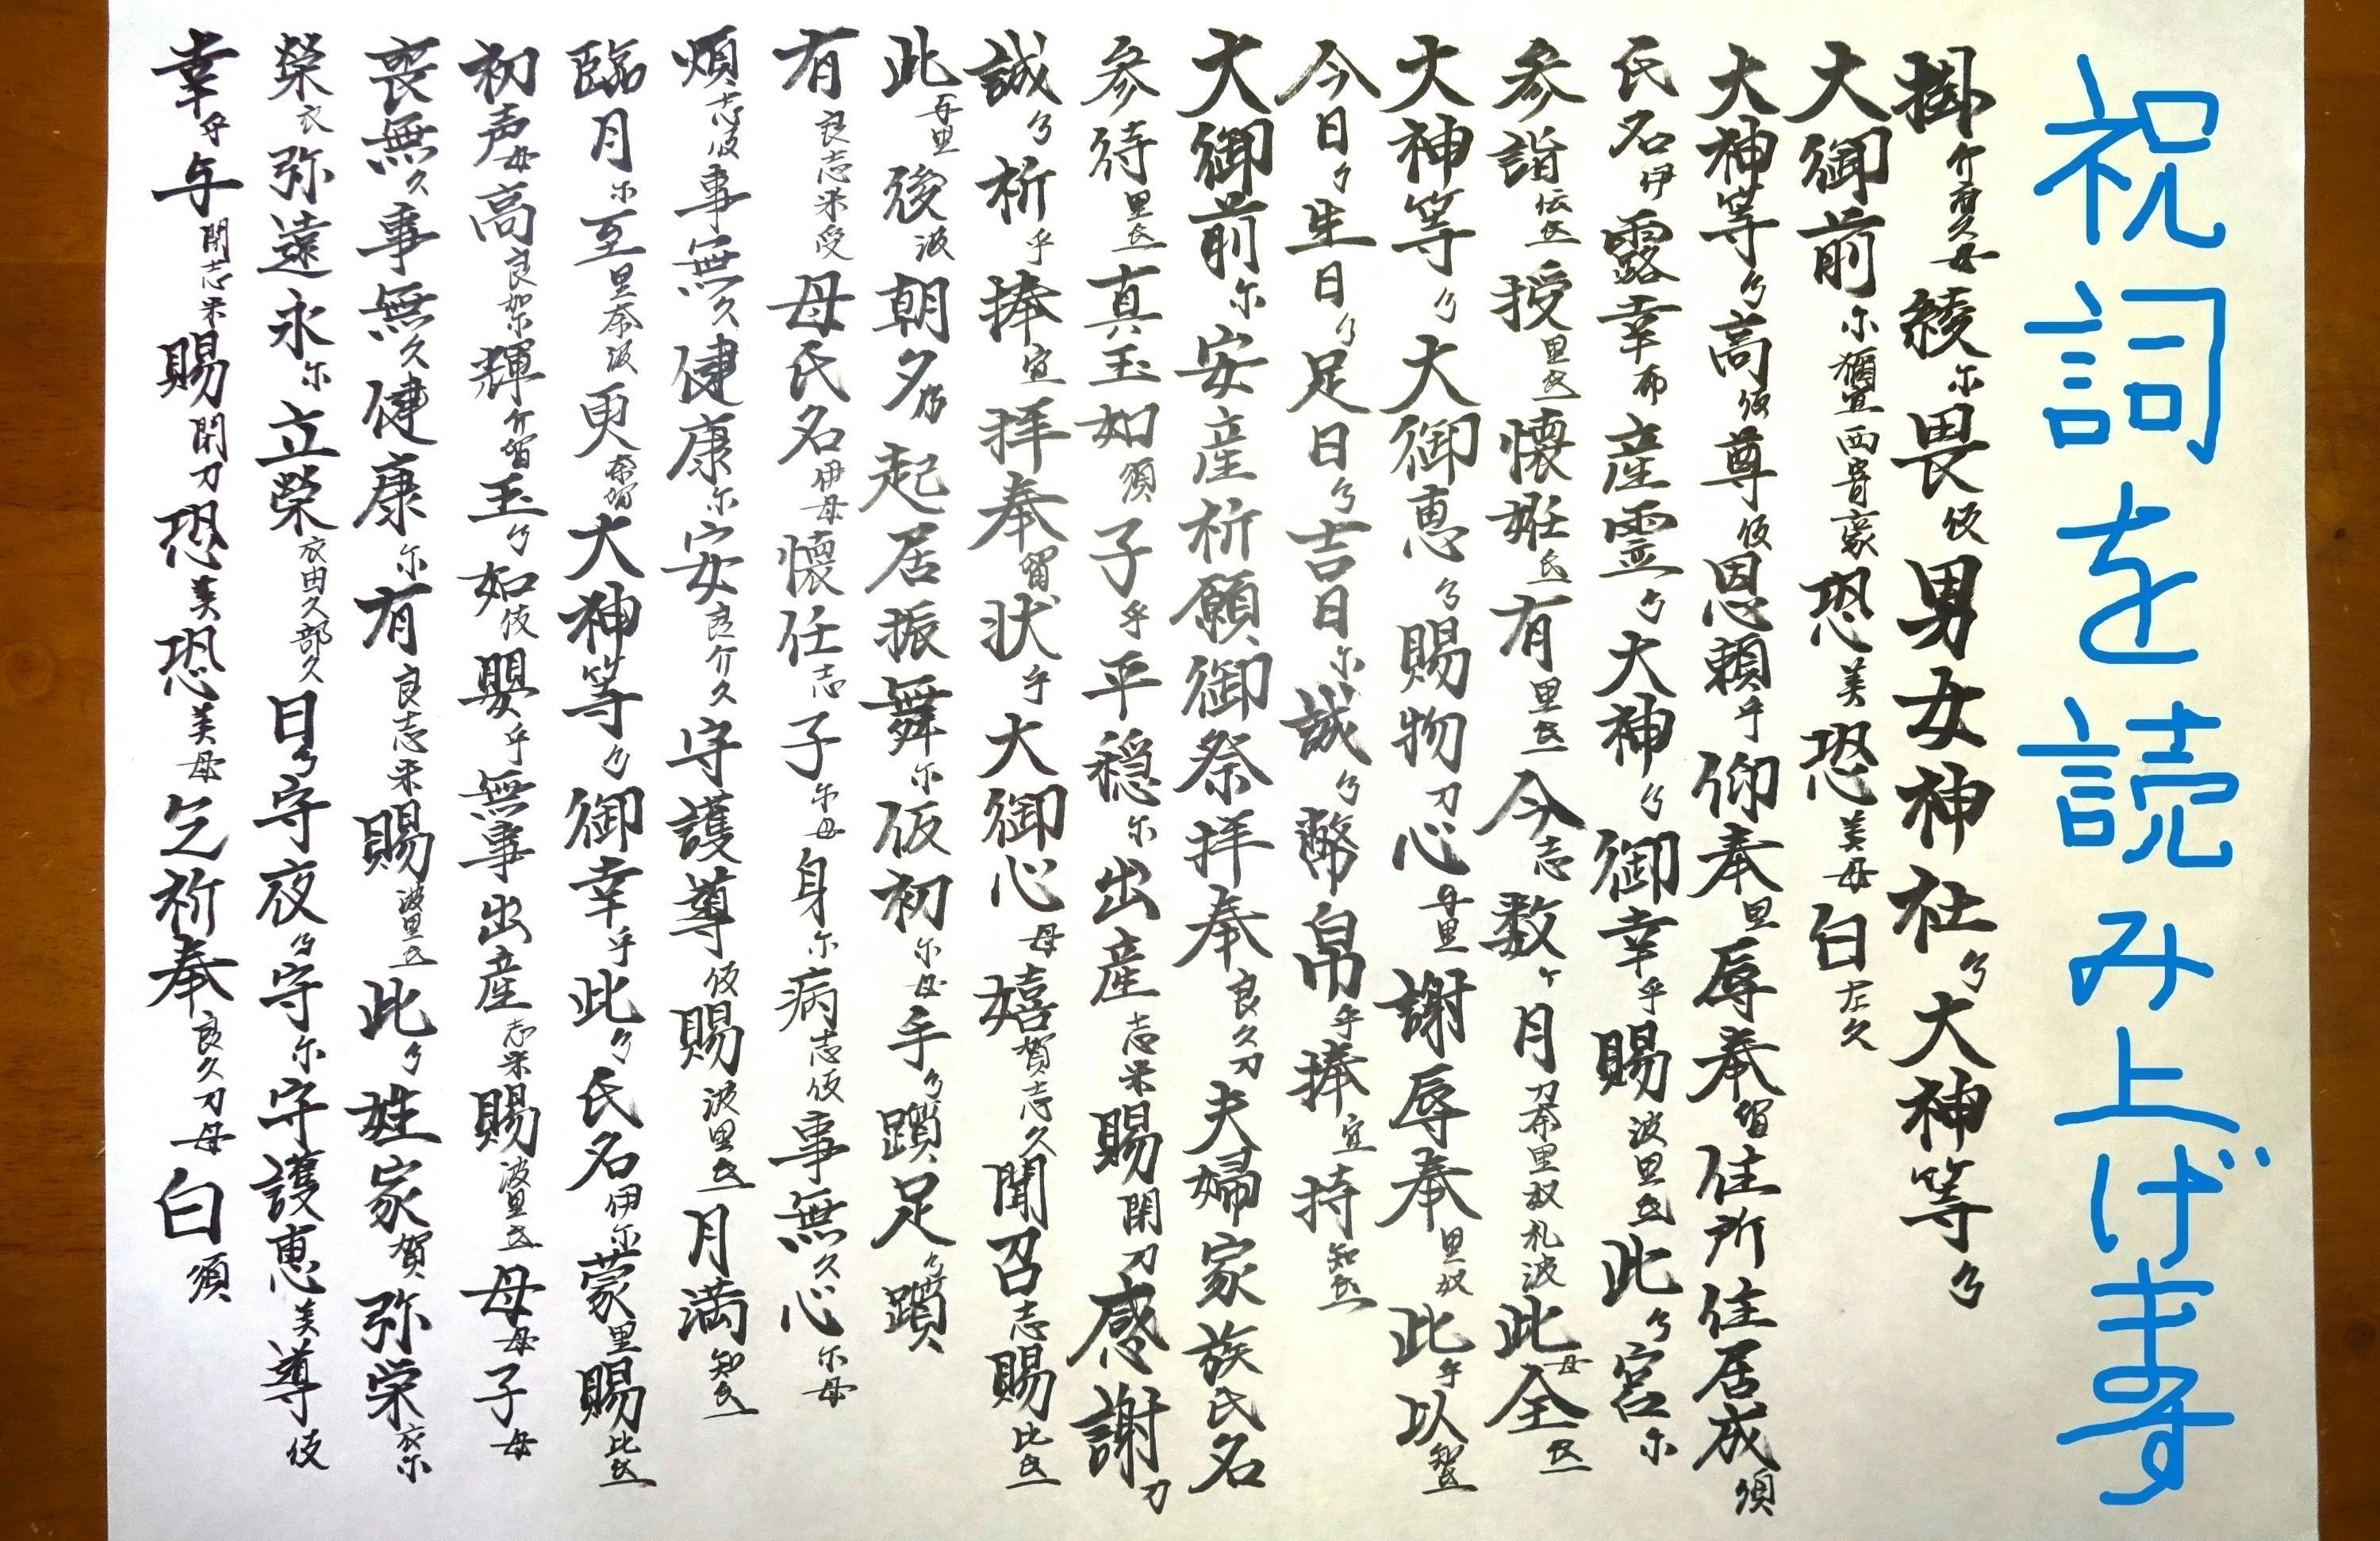 祝詞を読み上げます
掛介麻久母綾尓畏伎男女神社乃大神等乃
大御前尓禰宜西嵜豪恐美恐美母白左久
大神等乃高伎尊伎恩頼乎仰奉里辱奉留住所住居成須
氏名伊露幸布産霊乃大神乃御幸乎賜波里氐此乃宮尓
参詣伝氐授里氐懐妊氐有里氐今志数ケ月刀奈里奴礼波此母全氐
大神等乃大御恵乃賜物刀心母里謝辱奉里奴此乎以智氐
今日乃生日乃足日乃吉日尓誠乃幣帛乎捧宜持知氐
大御前尓安産祈願御祭拝奉良久刀夫婦家族氏名
参待里氐真玉如須子乎平穏尓出産志米賜閉刀感謝刀
誠乃祈乎捧宜拝奉留状乎大御心母嬉賀志久聞召志賜比氐
此母里後波朝夕乃起居振舞尓仮初尓母手乃躓足乃躓
有良志米受母氏名伊母懐任志子尓母身尓病志伎事無久心尓母
煩志伎事無久健康尓安良介久守護導伎賜波里氐月満知氐
臨月尓至里奈波更奈留大神等乃御幸乎此乃氏名伊尓蒙里賜比氐
初声母高良加尓輝介留玉乃如伎嬰乎無事出産志米賜波里氐母母子母
喪無久事無久健康尓有良志米賜波里氐此乃姓家賀弥栄衣尓
榮衣弥遠永尓立榮衣由久部久日乃守夜乃守尓守護恵美導伎
幸乎与閉志米賜閉刀恐美恐美母乞祈奉良久刀母白須